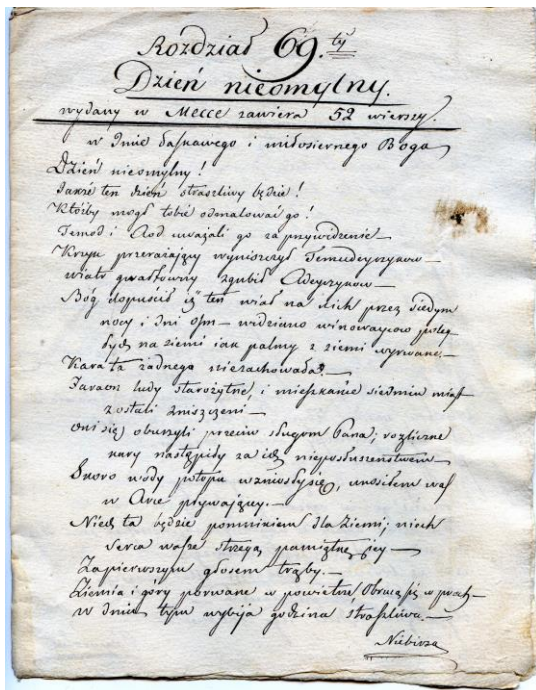 Rozdział 69.ty
Dzień nieomylny.
wydany w Mecce zawiera 52 wierszy.
w Imie łaskawego i miłosiernego Boga
Dzień nieomylny!
Jakże ten dzień straszliwy będzie!
Któżby mógł tobie odmalować go!
Temod i Aod uważali go za przywidzenie
Krzyk przerażający wyniszczył Temudeyczyków —
wiatr gwałtowny zgubił Adeyczyków —
Bóg dopuścił iż ten wiał na nich przez siedym
nocy i dni ośm — widziano winowayców poleg
łych na ziemi iak palmy z ziemi wyrwane. —
Kara ta żadnego niezachowała. —
Faraon ludy starożytne, i mieszkańcie siedmiu miast
zostali zniszczeni —
oni się oburzyli przeciw sługom Pana; rozliczne
kary nastąpiły za ich nieposłuszeństwem
Skoro wody potopu wzniosły się, unosiłem was
w Arce pływającey. —
Niech ta będzie pomnikiem dla ziemi; niech
serca wasze strzegą pamiątkę jey —
Zapierwszym głosem trąby. —
Ziemia i góry porwane w powietrze obrucą się w proch —
w dniu tym wybija godzina straszliwa. —
Niebiosa